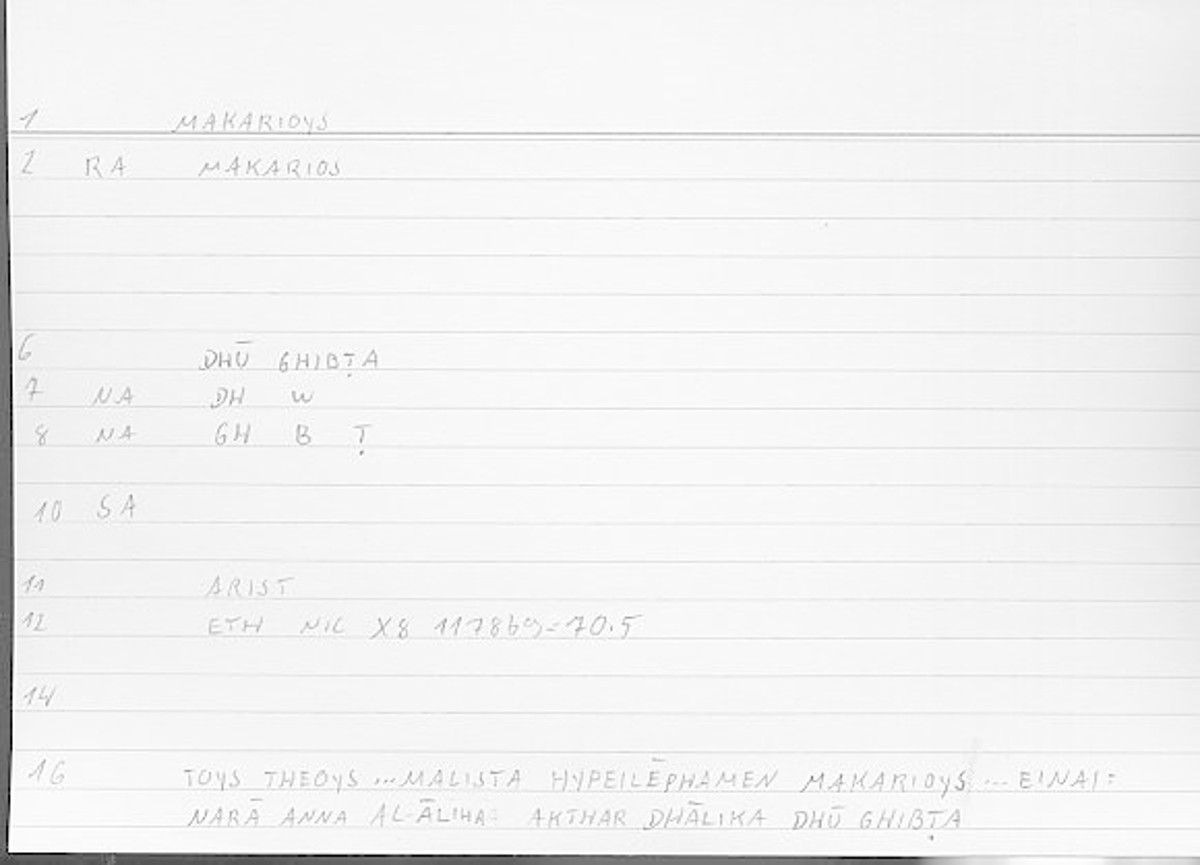 1 MAKARIOYS
2 RA MAKARIOS
6 DHŪ GHIBṬA
7 NA DH W
8 NA GH B Ṭ
10 SA
11 ARIST
12 ETH NIC X8 1178b9-70.5
14
16 TOYS THEOYS ... MALISTA HYPEILĒPHAMEN MAKARIOYS ... EINAI:
NARĀ ANNA AL-ĀLIHA AKTHAR DHĀLIKA DHŪ GHIBṬA